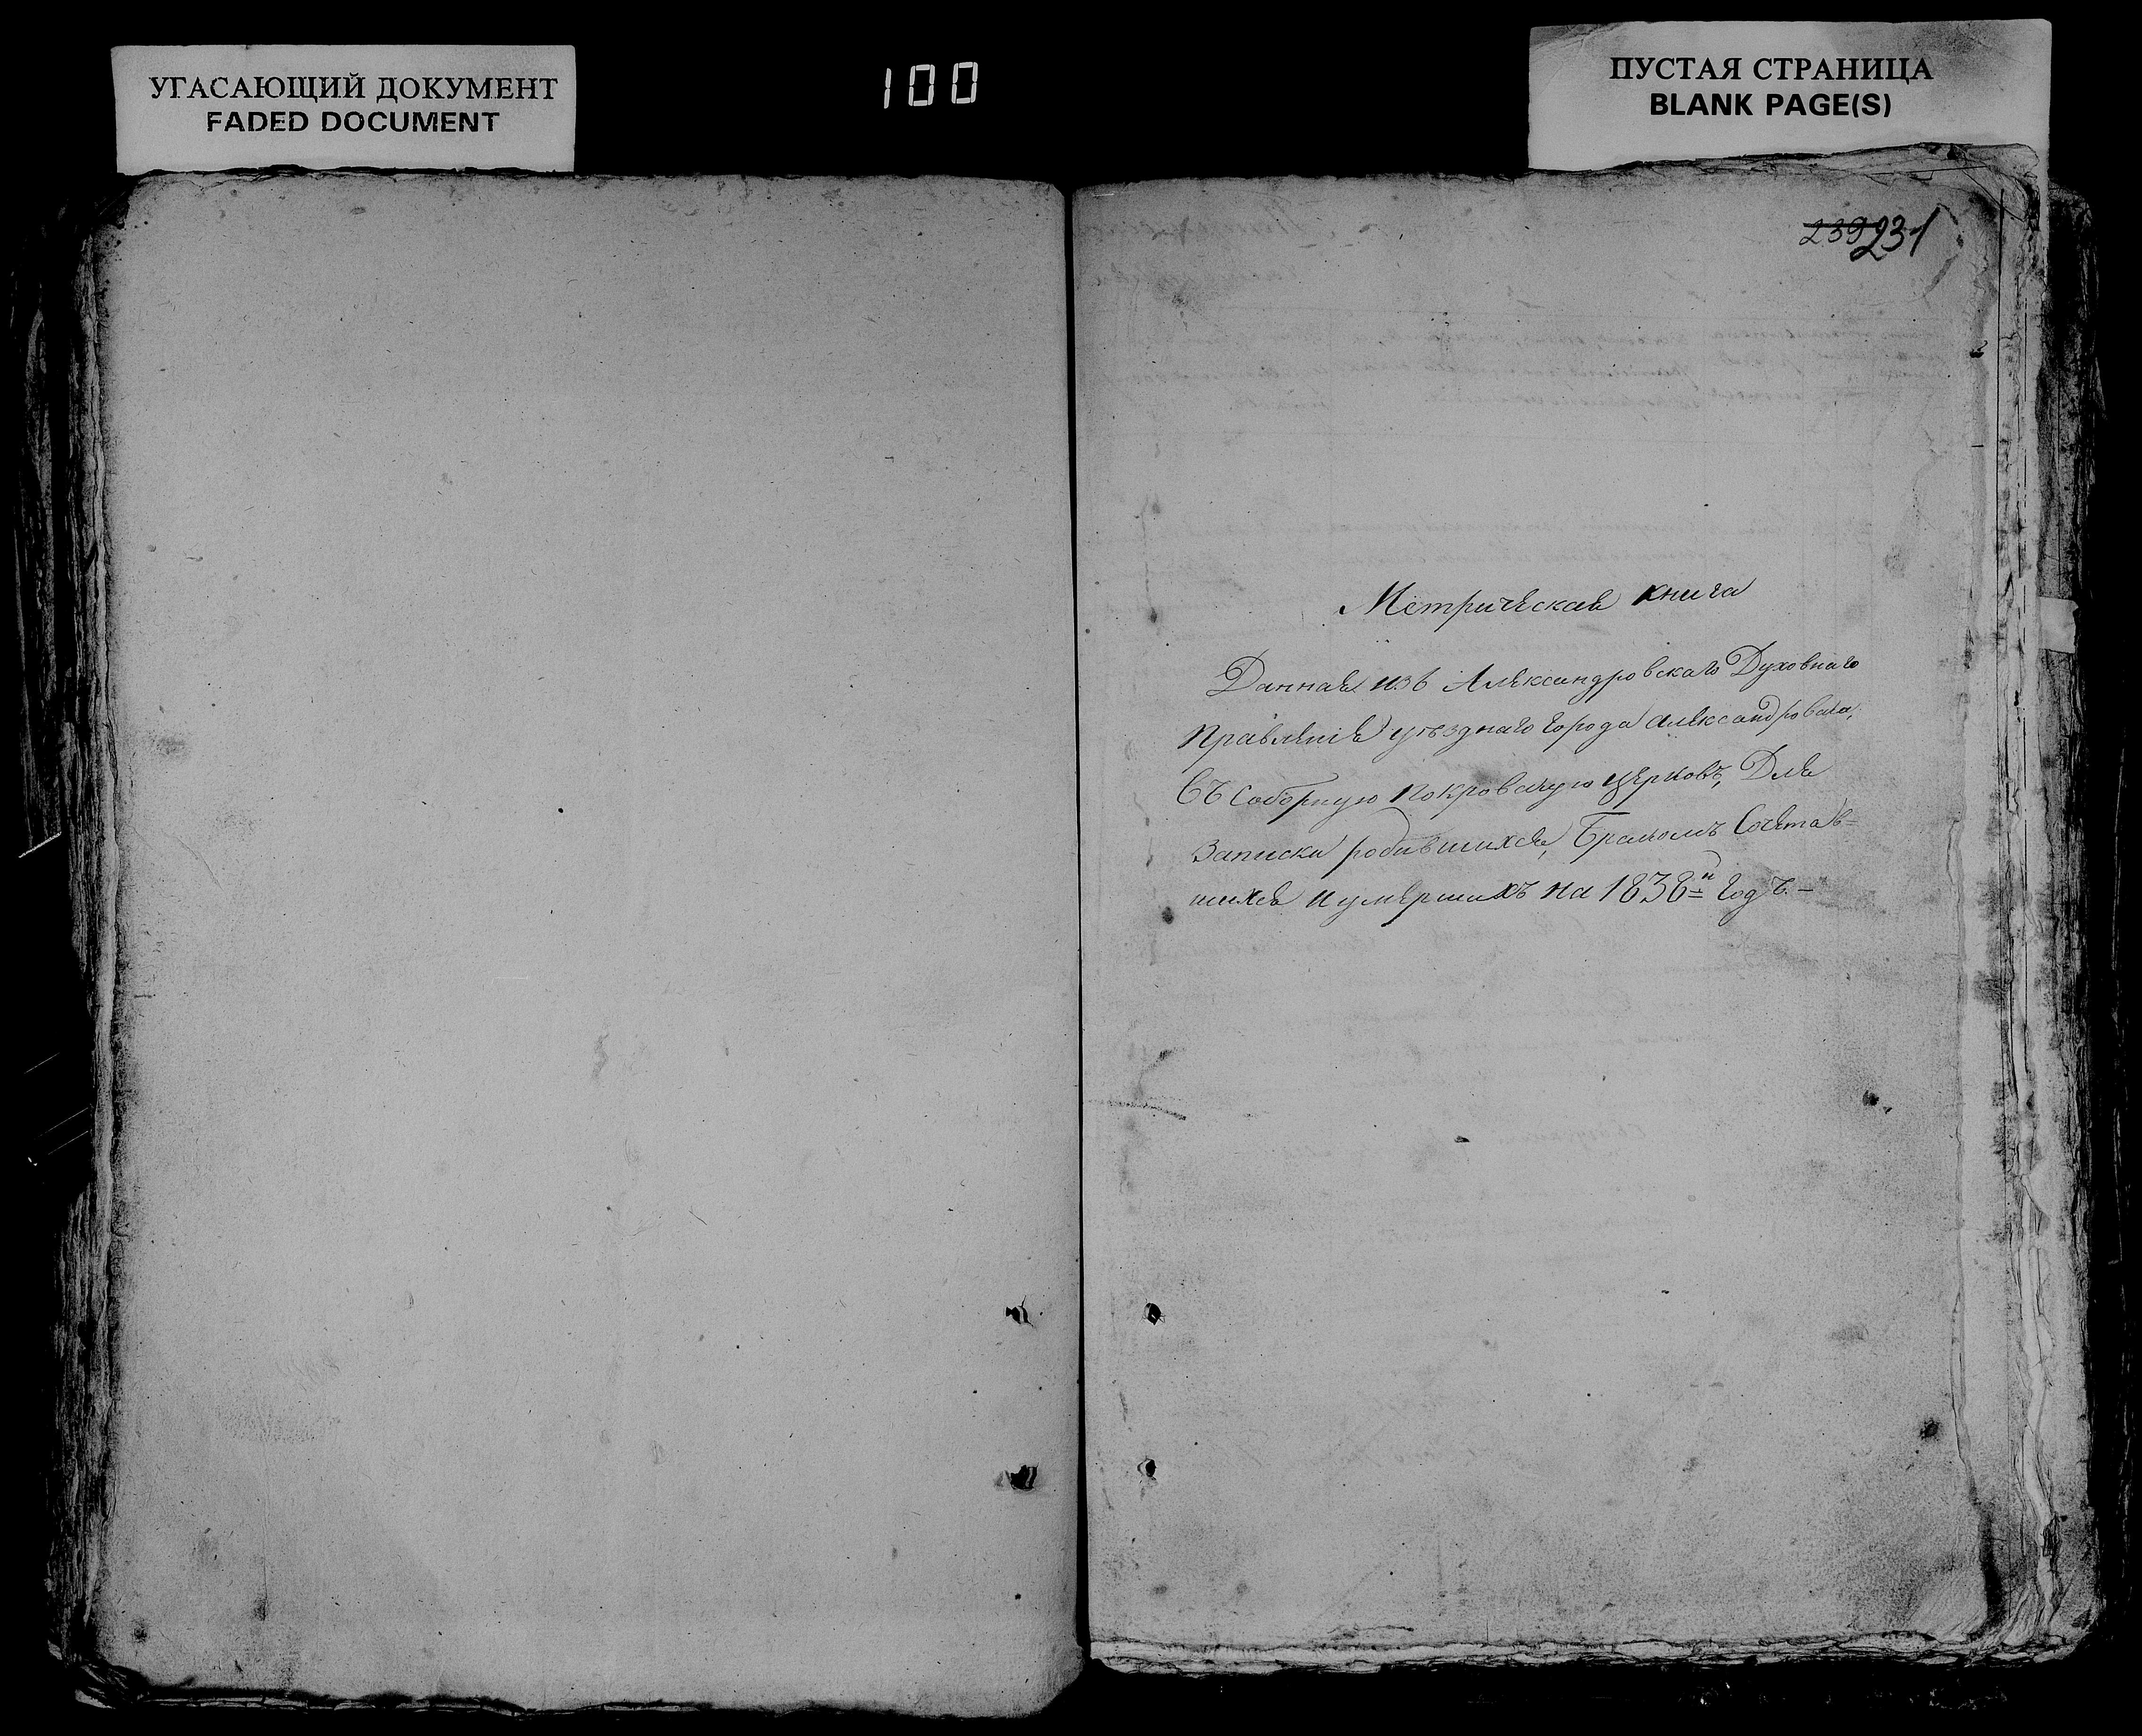 УГАСАЮЩИЙ ДОКУМЕНТ
FADED DOCUMENT
100
ПУСТАЯ СТРАНИЦА
BLANK PAGE(S)
239 231
Метрическая книга
Данная изъ Александровскаго Духовнаго
Правленія уѣзднаго города Александровска,
въ Соборную Покровскую церковь, Для
Записки родившихся, Бракомъ Сочетав-
шихся и умершихъ на 1838й годъ.-